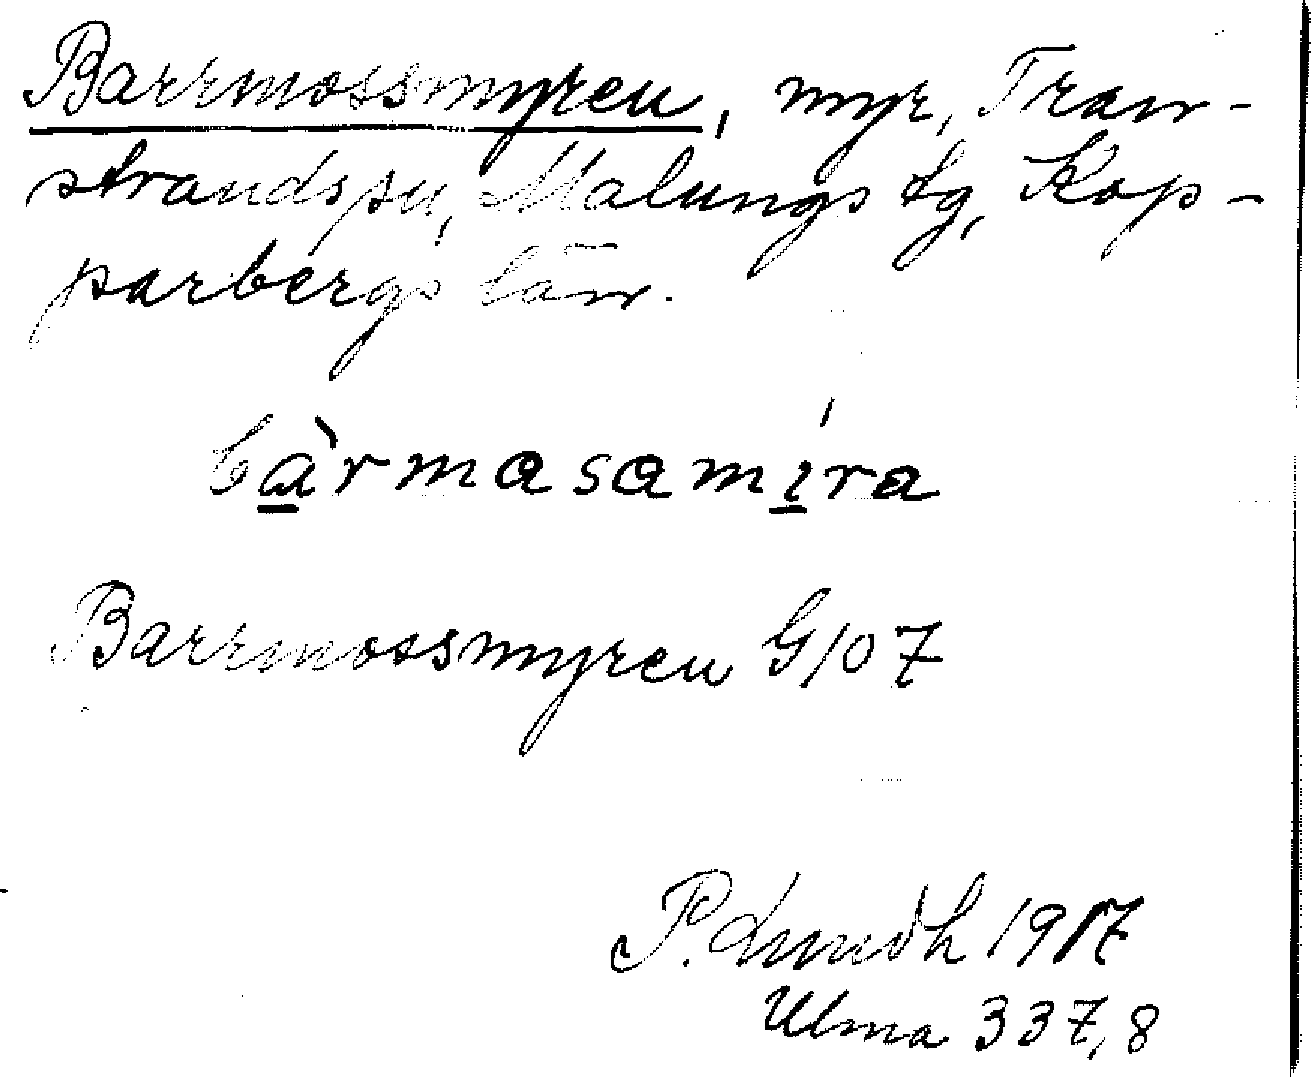 Barrmossmyren, myr, Tran-
strands sn, Malungs tg, Kop-
parbergs län.
bàrmasamíra
Barrmossmyren G107
P. Lundh 1917
Ulma 337,8